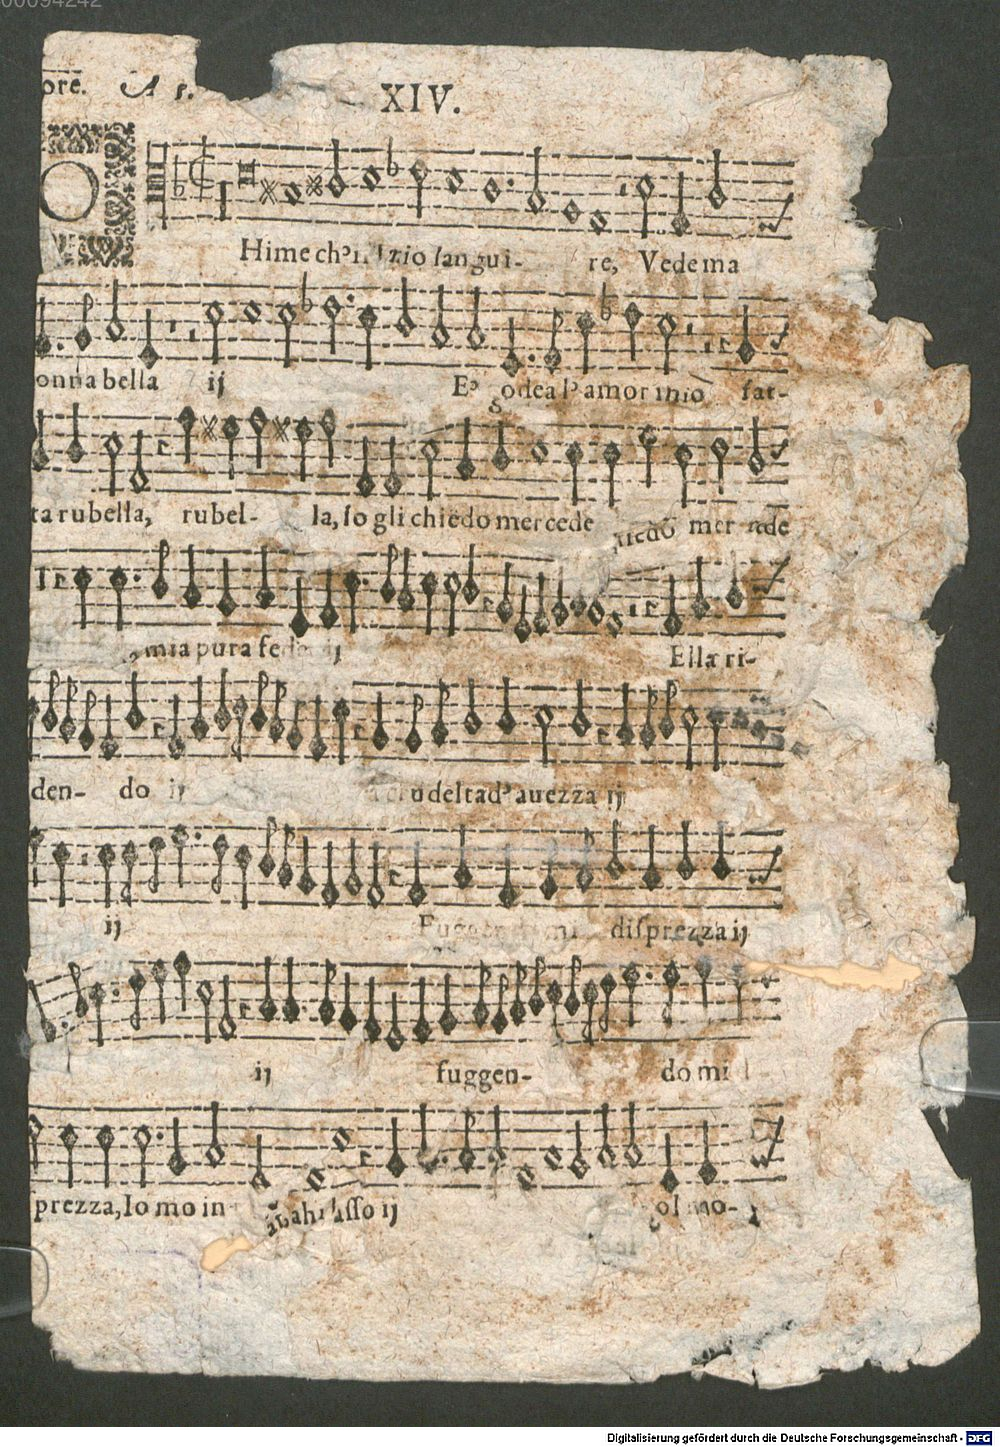 00094242
ore. A 5. XIV.
O
Hime ch' zio langui- re, Vede ma
onna bella ij E' godea l'amor mio fat-
ta rubella, rubel- la, Io gli chiedo mercede mer cede
mia pura fede ij Ella ri-
den- do ij crudeltad' auezza ij
ij Fuggen mi disprezza ij
ij fuggen- do mi
sprezza, Io mo in ahi lasso ij ol mo-
Digitalisierung gefördert durch die Deutsche Forschungsgemeinschaft - DFG